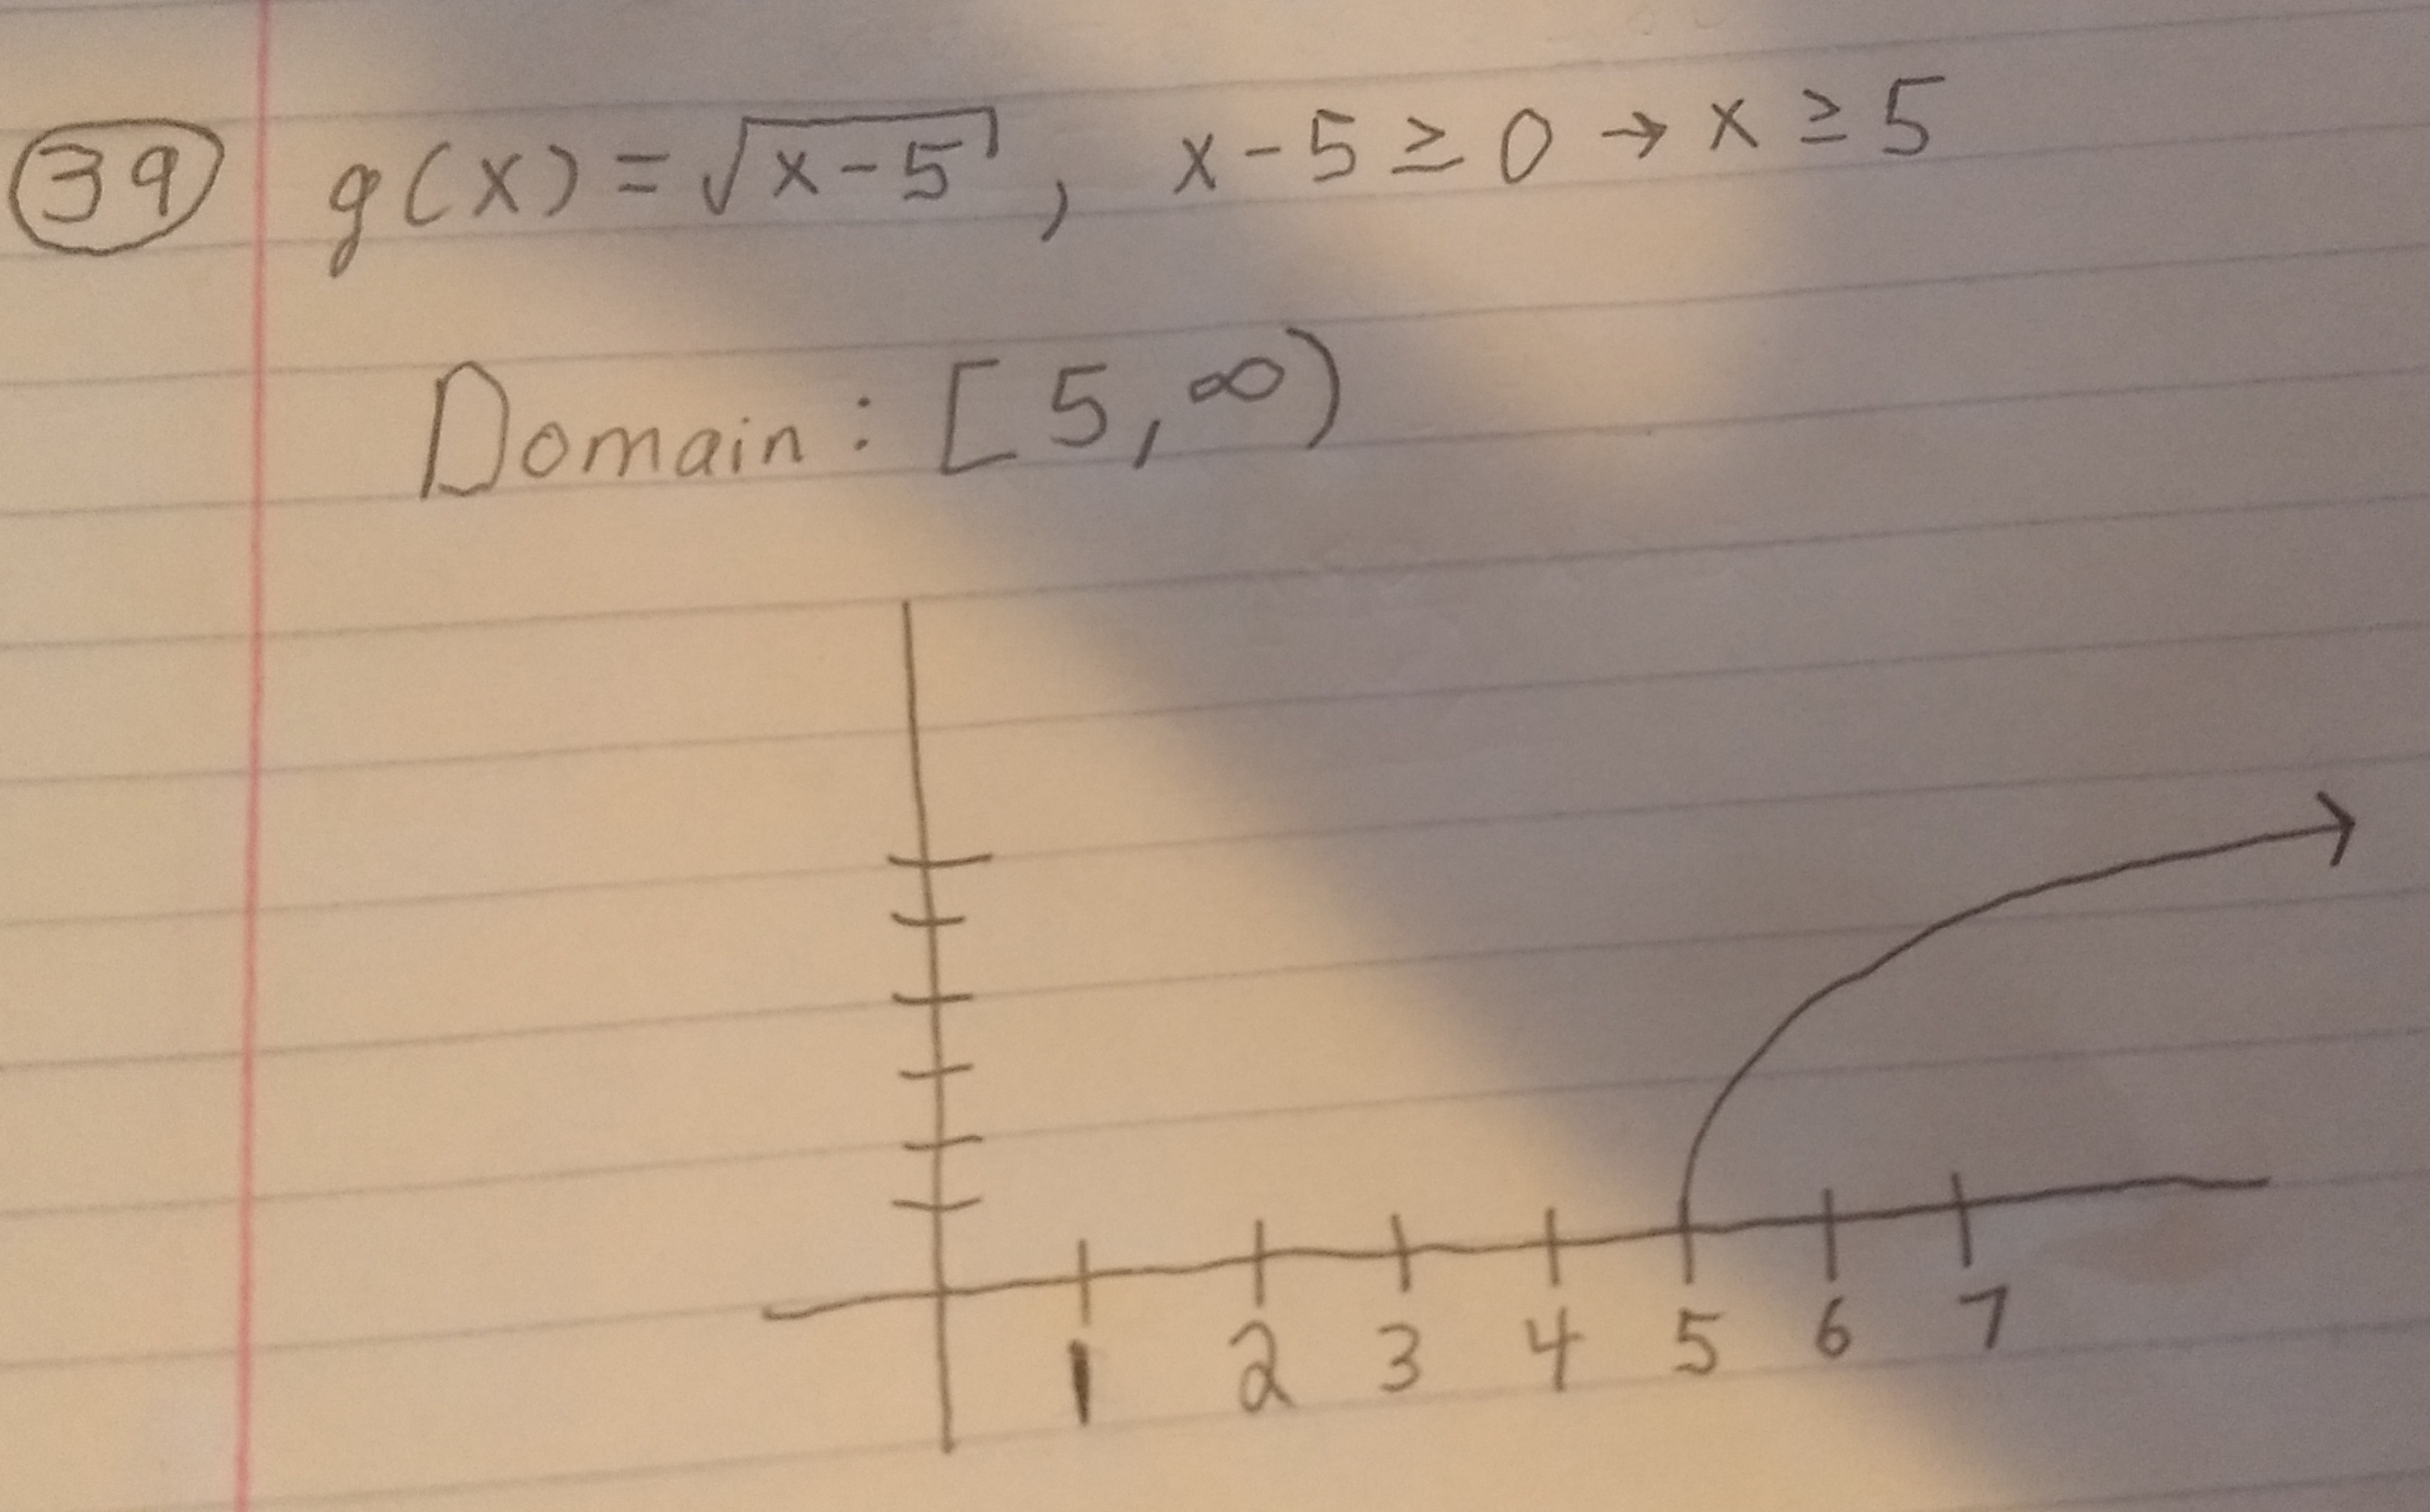 39 g(x) = √x-5 , x-5 ≥ 0 → x ≥ 5
Domain : [5, ∞)
1 2 3 4 5 6 7